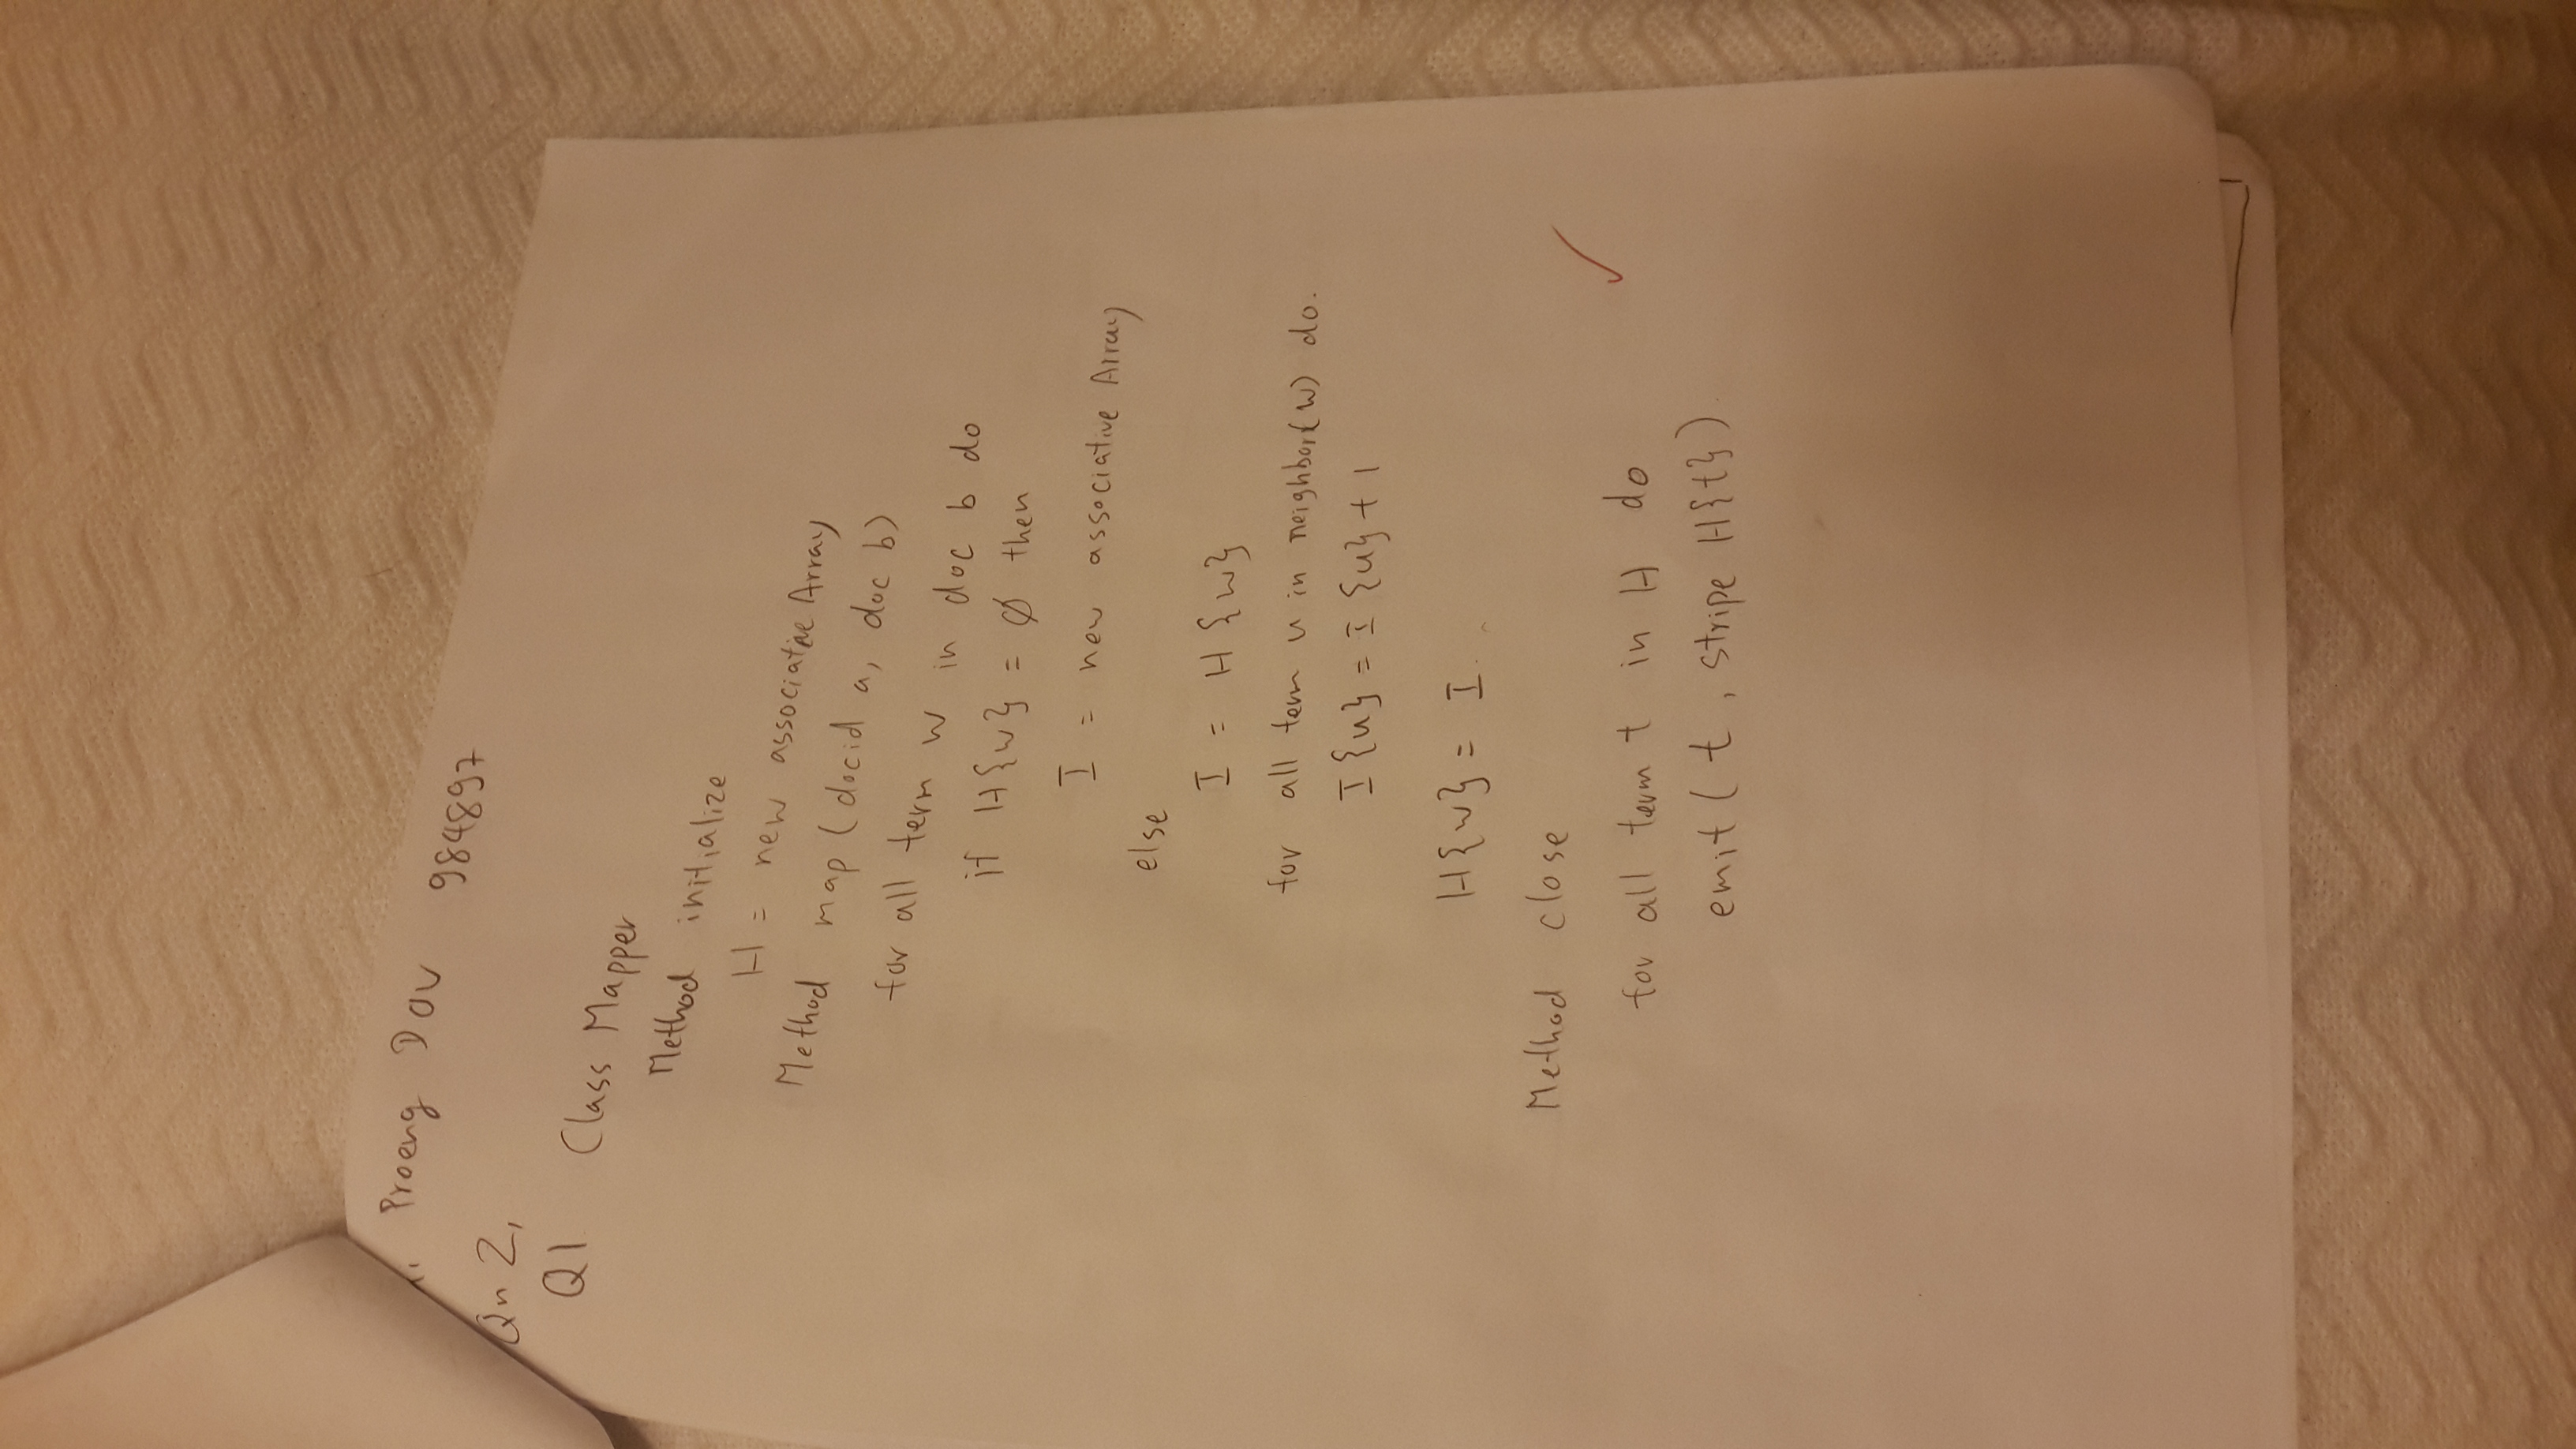 1. Proeng DOV 984897
Qn 2,
Q1 Class Mapper
Method initialize
H = new associative Array
Method map (docid a, doc b)
for all term w in doc b do
if H{w} = ∅ then
I = new associative Array
else
I = H{w}
for all term u in neighbor(w) do.
I{u} = I{u} + 1
H{w} = I.
Method close
for all term t in H do
emit ( t , stripe H{t})